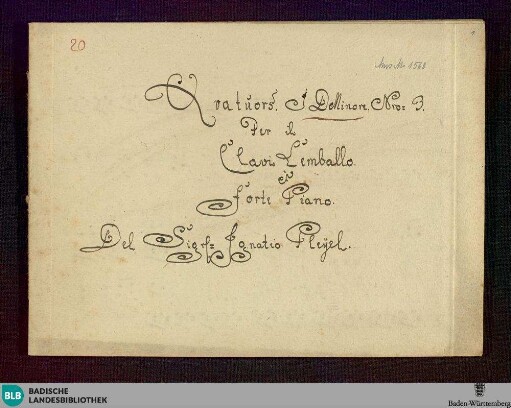 20
Mus. Hs. 1568
Quatuors. I DeMinore. Nro: 3.
Per il
Clavi Cemballo.
Forte Piano.
Del Sigr: Ignatio Pleÿel.
BLB BADISCHE
LANDESBIBLIOTHEK
Baden-Württemberg